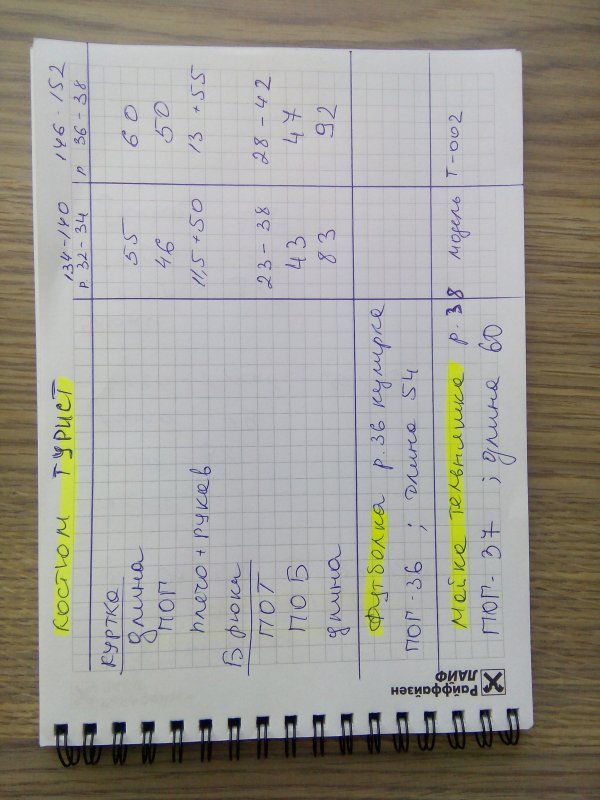 КОСТЮМ ТУРИСТ 134-140 146-152
р. 32-34 р 36-38
КУРТКА
длина 55 60
ПОГ 46 50
плечо+рукав 11,5+50 13+55
Брюки
ПОТ 23-38 28-42
ПОБ 43 47
длина 83 92
Футболка р.36 кулирка
ПОГ-36 ; длина 54
Майка тельняшка р.38 модель Т-002
ПОГ-37 ; длина 60
Райффайзен
ЛАЙФ